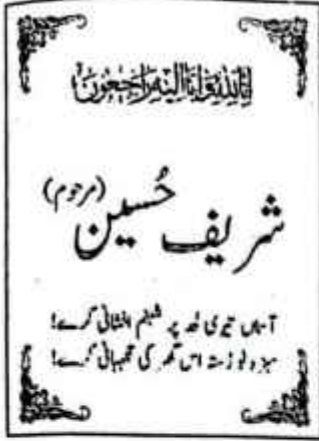 انا للہ وانا الیہ راجعون
(مرحوم)
شریف حُسین
آسماں تیری لحد پر شبنم افشانی کرے!
سبزہ نورستہ اس گھر کی نگہبانی کرے!